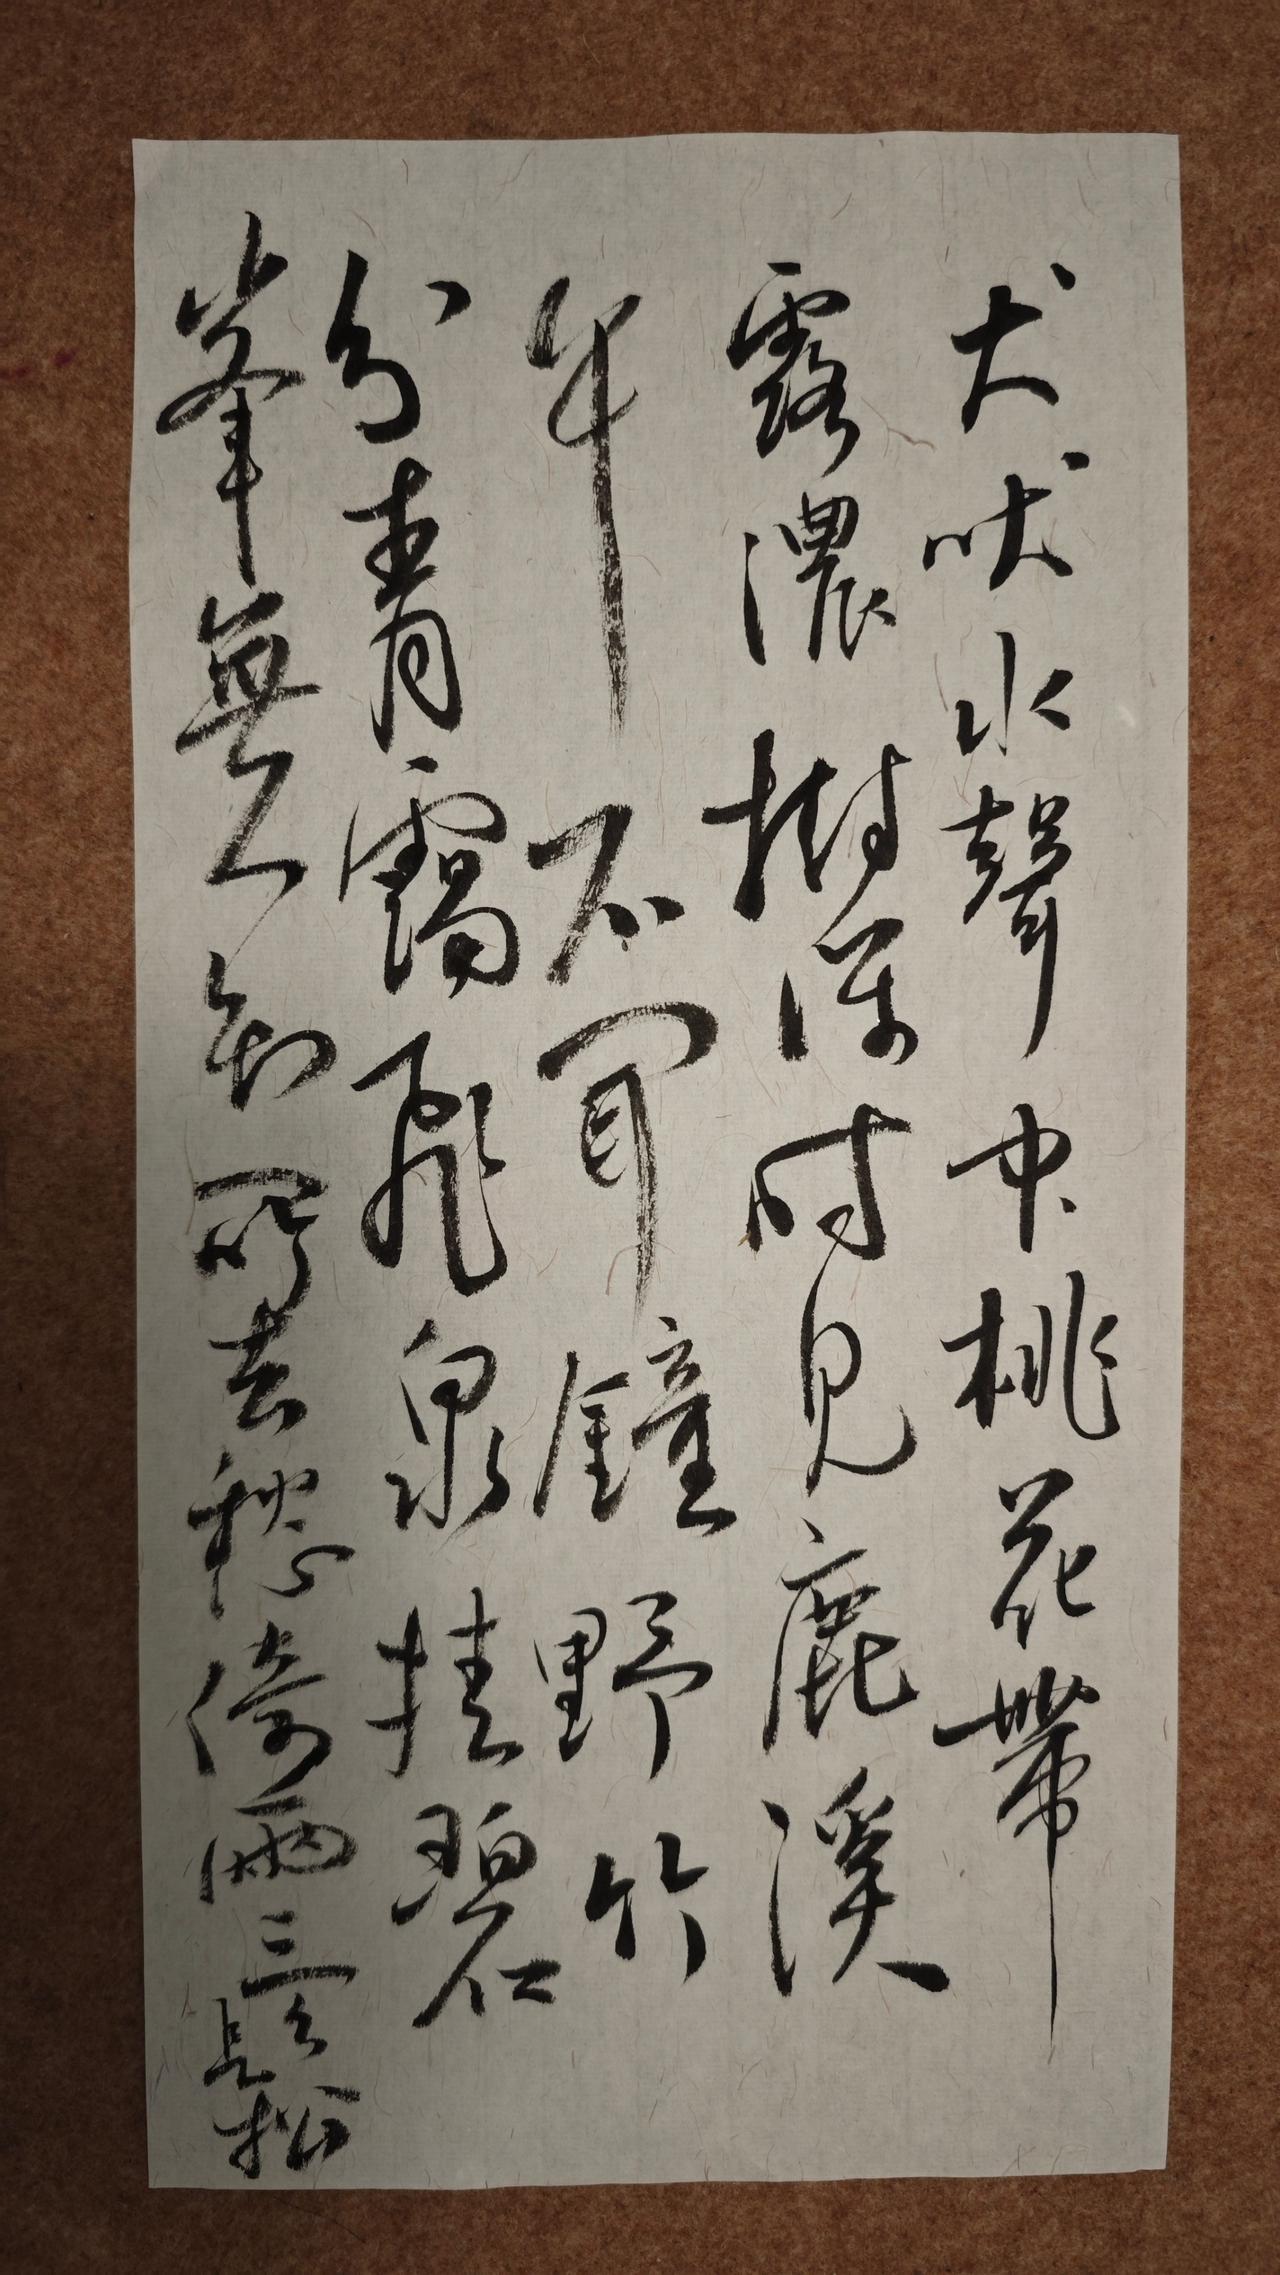 犬吠水聲中桃花帶
露濃樹深時見鹿溪
午不聞鐘野竹
分青靄飛泉挂碧
峯無人知所去愁倚兩三鬆